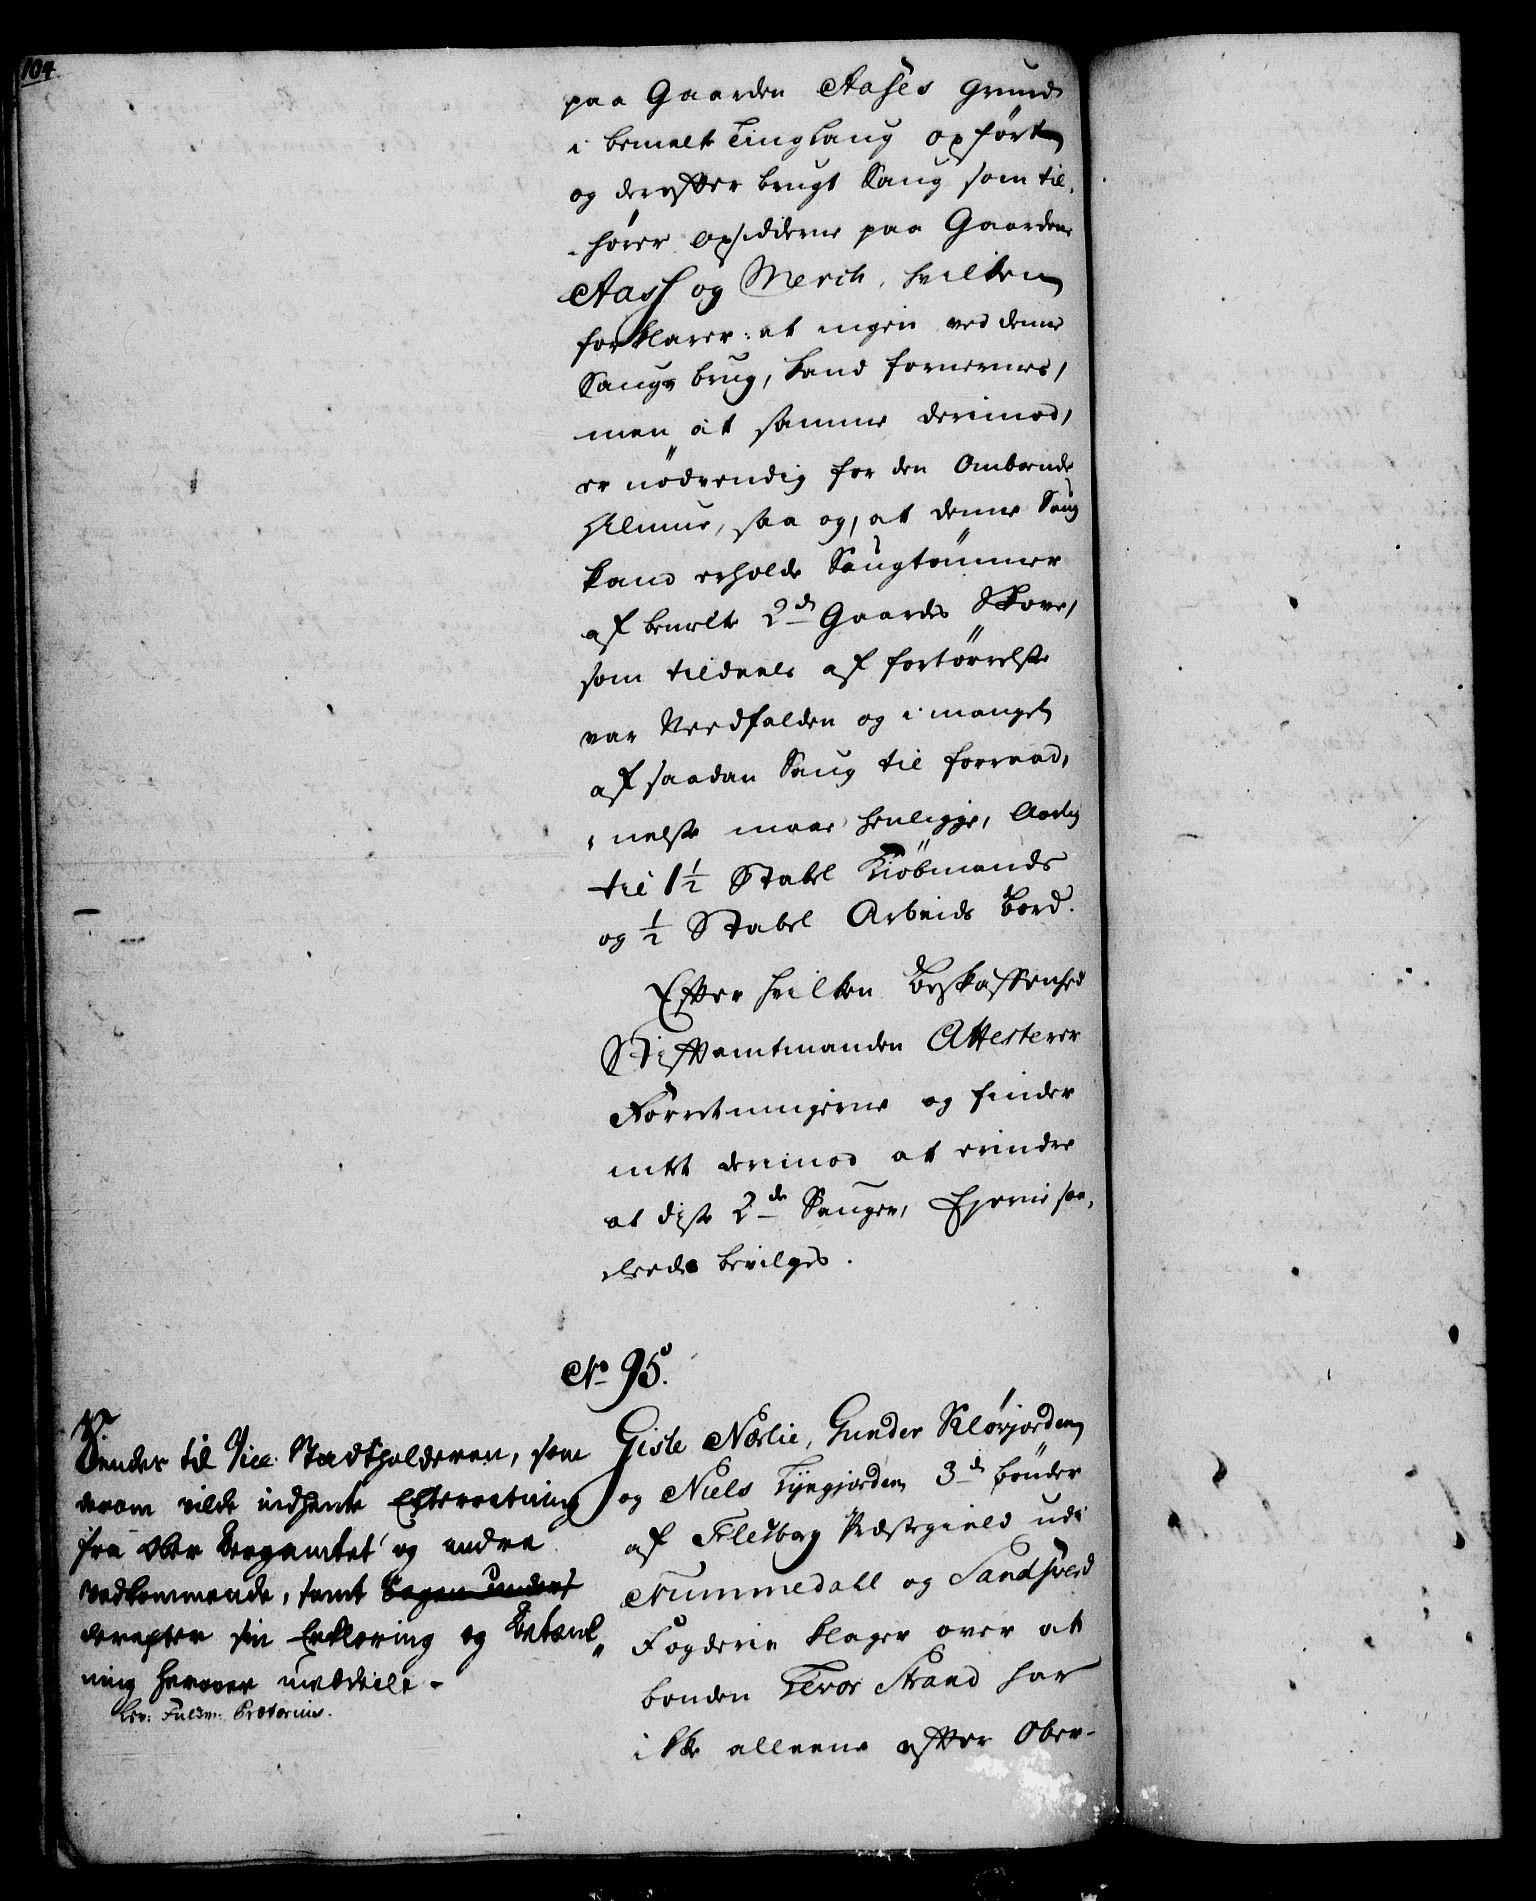 104
paa Gaarden Aases Grund
i bemelte Tinglaug opført
og derefter brugt Saug som til-
hører opsidderne paa Gaardene
Aass og Merch, hvilken
forklarer: at ingen ved denne
Saugs brug, kand fornermes,
men at samme derimod,
er nödvendig for den Omboende
Almue, saa og, at denne Saug
kand erholde Saugtömmer
af bemelte 2de Gaardes Skove,
som tildeels af fortörrelse
var Needfalden og i mangel
af saadan Saug til forraad-
nelse maae henligge, Aarlig
til 1½ Stabel Kiöbmands
og ½ Stabel Arbeids Bord.
Efter hvilken Beskaffenhed
Stiftamtmanden Attesterer
Forretningerne og finder
intet derimod at erindre
at disse 2de Sauger, Ejerne saa-
leedes bevilges.
No 95.
Giste Nørlie, Gunder Kløvjorden
og Niels Tyngjorden 3de bönder
af Flesberg Præstegield udi
Nummedahl og Sandsverd
Fogderie klager over at
bonden Tevor Strand har
ikke alleene efter Ober-
Sendes til Vice Stadtholderen, som
derom vilde indhente Efterretning
fra Ober Bergamtet og andre
Vedkommende, samt
derefter sin Erklæring og Betænk-
ning herover meddeele.
Lev: Fuldm: Prætorius.